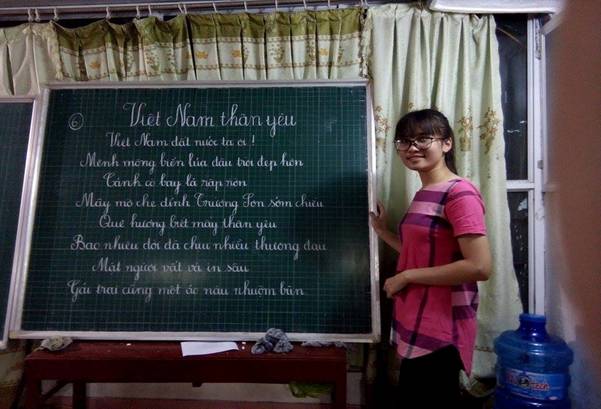 6
Việt Nam thân yêu
Việt Nam đất nước ta ơi !
Mênh mông biển lúa đâu trời đẹp hơn
Cánh cò bay lả rập rờn
Mây mờ che đỉnh Trường Sơn sớm chiều
Quê hương biết mấy thân yêu
Bao nhiêu đời đã chịu nhiều thương đau
Mặt người vất vả in sâu
Gái trai cũng một áo nâu nhuộm bùn.